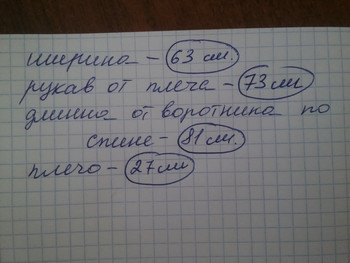 ширина - 63 см.
рукав от плеча - 73 см
длинна от воротника по
спине - 81 см.
плечо - 27 см